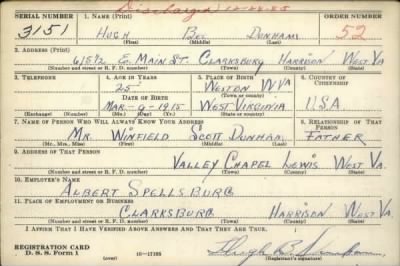 Discharged 12-28-45
SERIAL NUMBER 1. NAME (Print) ORDER NUMBER
3151 HUGH BEE DUNHAM 52
(First) (Middle) (Last)
2. ADDRESS (Print)
615½ E. MAIN ST. CLARKSBURG HARRISON WEST VA
(Number and street or R. F. D. number) (Town) (County) (State)
3. TELEPHONE 4. AGE IN YEARS 5. PLACE OF BIRTH 6. COUNTRY OF CITIZENSHIP
25 WESTON W VA
DATE OF BIRTH (Town or county)
MAR-9-1915 WEST VIRGINIA USA
(Exchange) (Number) (Mo.) (Day) (Yr.) (State or country)
7. NAME OF PERSON WHO WILL ALWAYS KNOW YOUR ADDRESS 8. RELATIONSHIP OF THAT PERSON
MR. WINFIELD SCOTT DUNHAM FATHER
(Mr., Mrs., Miss) (First) (Middle) (Last)
9. ADDRESS OF THAT PERSON
VALLEY CHAPEL LEWIS WEST VA.
(Number and street or R. F. D. number) (Town) (County) (State)
10. EMPLOYER'S NAME
ALBERT SPELLSBURG
11. PLACE OF EMPLOYMENT OR BUSINESS
CLARKSBURG HARRISON WEST VA.
(Number and street or R. F. D. number) (Town) (County) (State)
I AFFIRM THAT I HAVE VERIFIED ABOVE ANSWERS AND THAT THEY ARE TRUE.
REGISTRATION CARD
D. S. S. Form 1 (over) 16—17105 Hugh B. Dunham
(Registrant's signature)